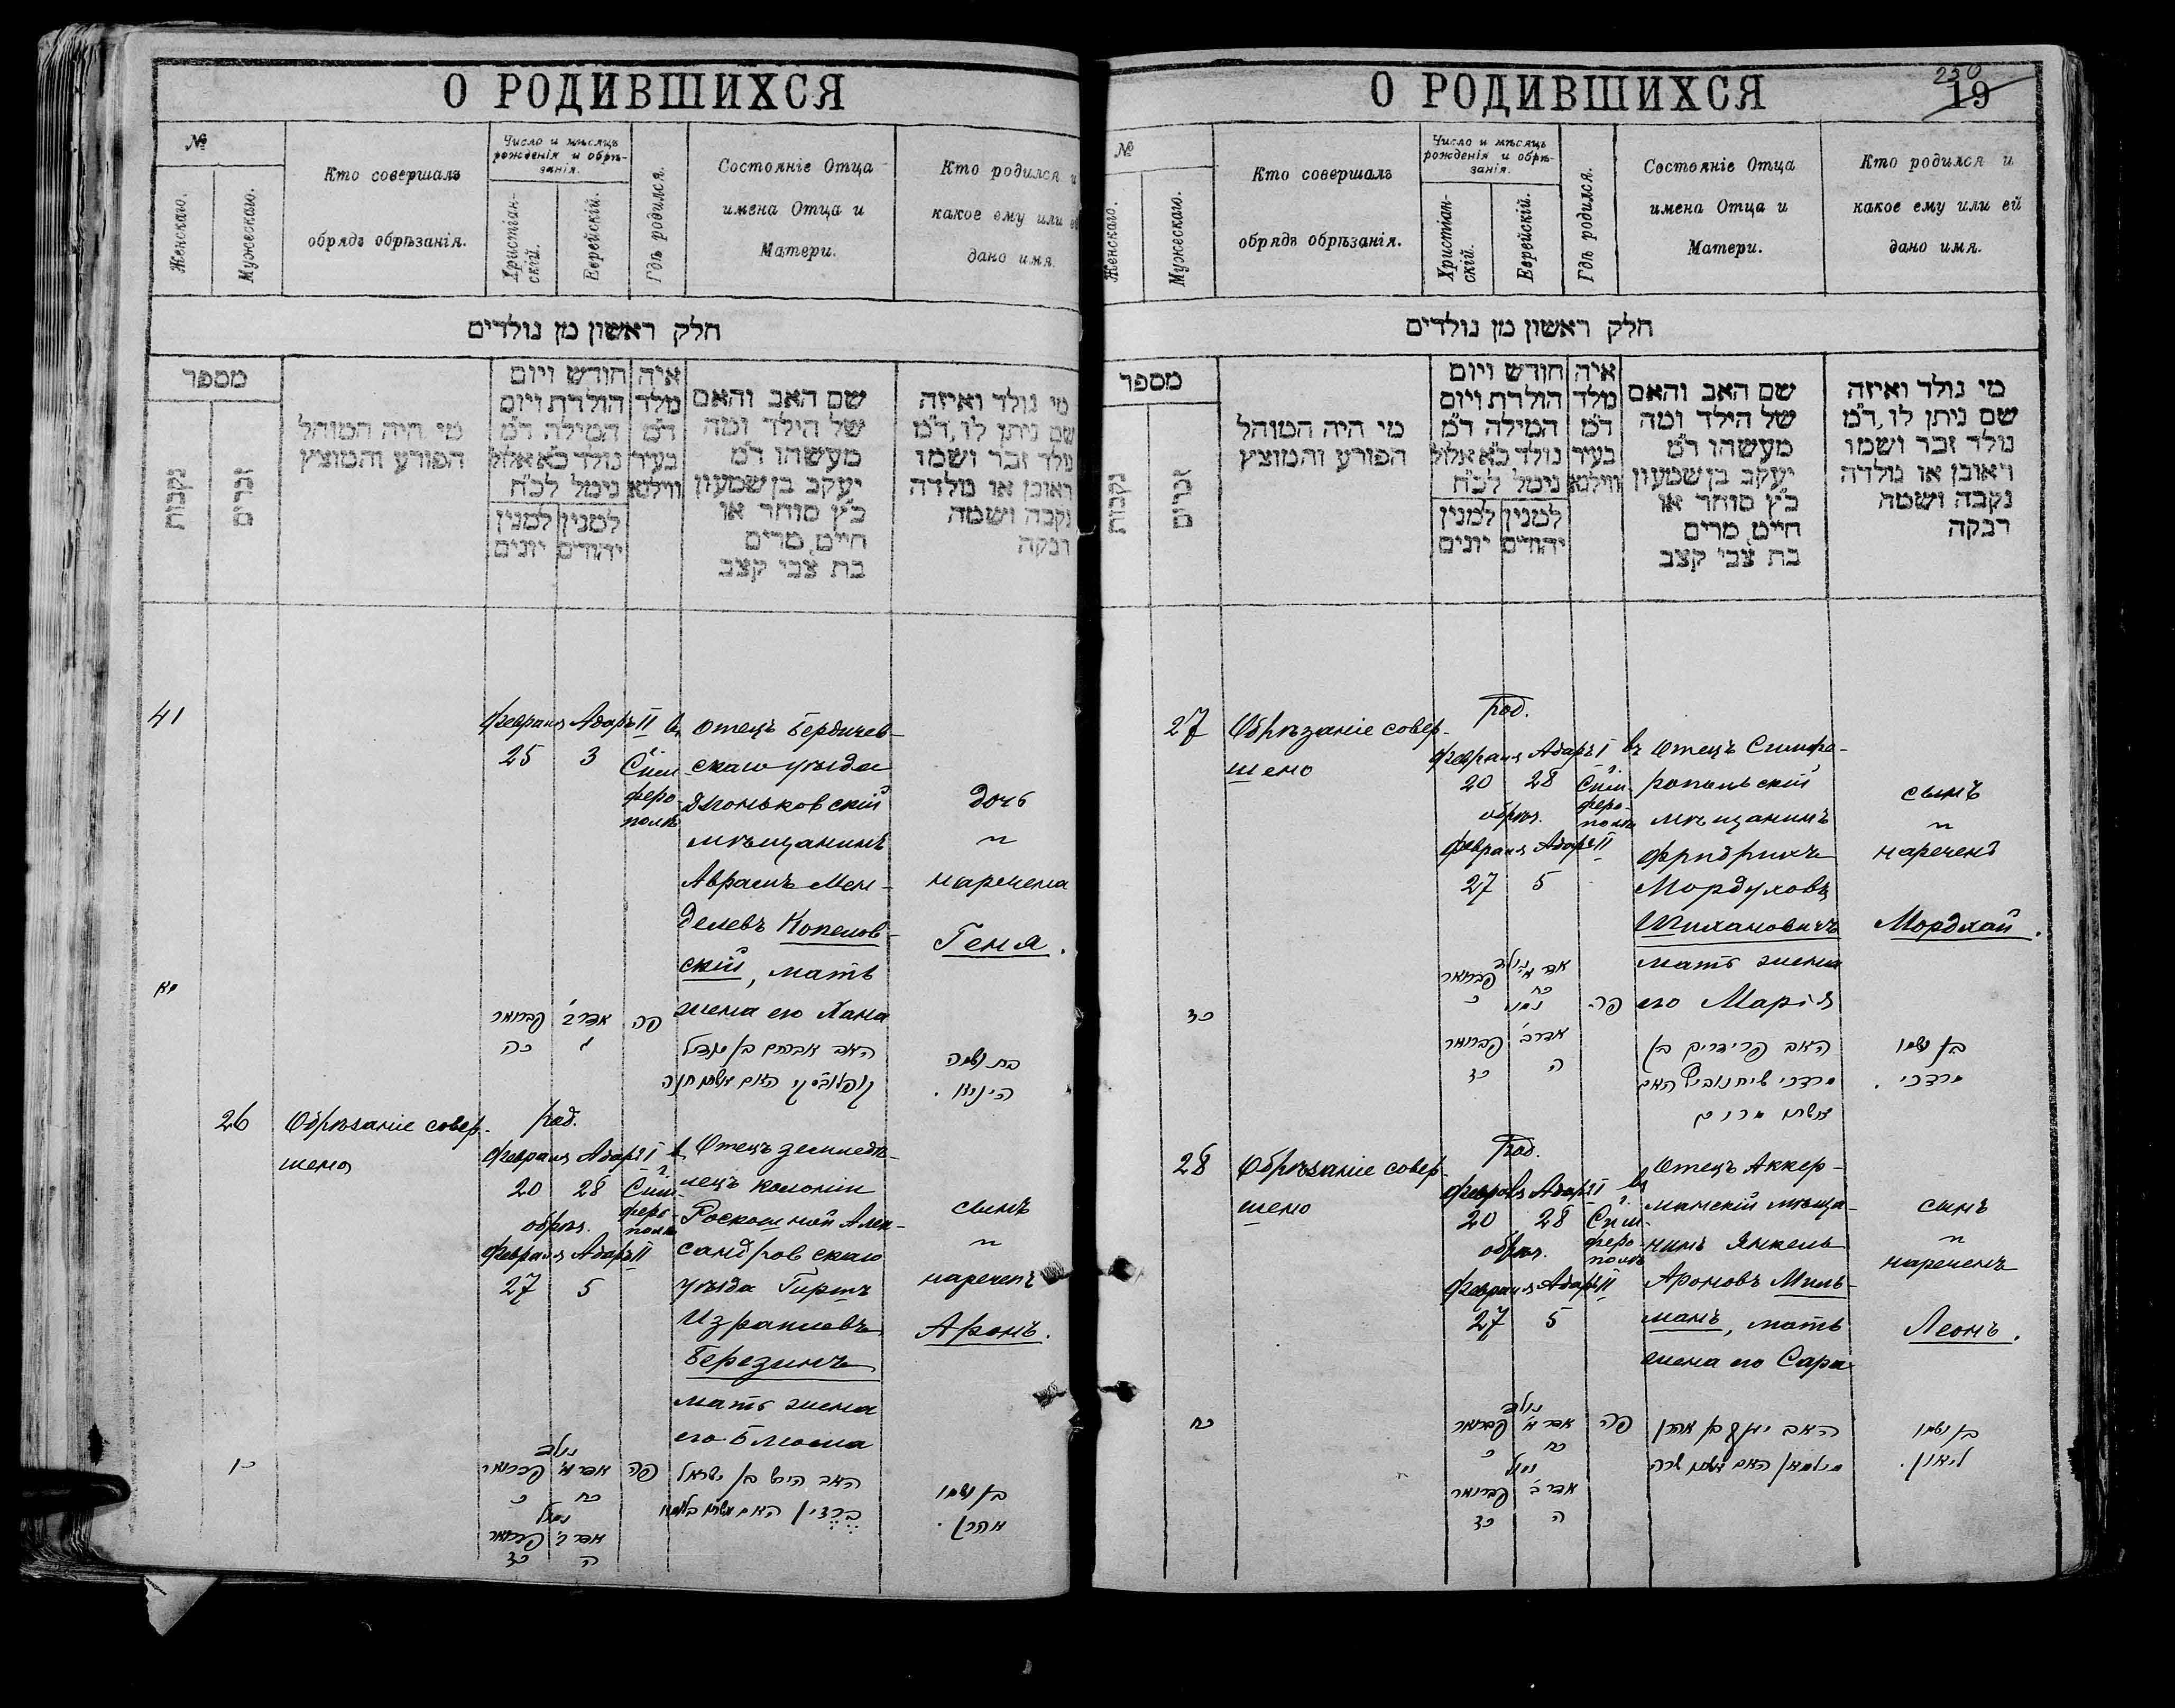 О РОДИВШИХСЯ
№
Женскаго.
Мужескаго.
Кто совершалъ
обрядъ обрѣзанія.
Число и мѣсяцъ
рожденія и обрѣ-
занія.
Христіан-
скій.
Еврейскій.
Гдѣ родился.
Состояніе Отца
имена Отца и
Матери.
Кто родился и
какое ему или ей
дано имя.
חלק ראשון מן נולדים
מספר
נקבות
זכרים
מי היה המוהל
הפורע והמוצץ
חודש ויום
הולדת ויום
המילה ד״מ
נולד כ״א אלול
נימל לכ״ח
למנין
יהודים
למנין
יונים
איה
מלד
ד״מ
בעיר
ווילנא
שם האב והאם
של הילד ומה
מעשהו ד״מ
יעקב בן שמעון
כ״ץ סוחר או
חייט, מרים
בת צבי קצב
מי נולד ואיזה
שם ניתן לו, ד״מ
נולד זכר ושמו
ראובן או נולדה
נקבה ושמה
רבקה
41
Февраля
25
Адаръ II
3
въ
г.
Сим-
феро-
полѣ
Отецъ Бердичев-
скаго уѣзда
мѣщанинъ
Аврамъ Мен-
делевъ Копелов-
скій, мать
жена его Хана
дочь
"
наречена
Геня.
מא
פברואר
כה
אדר ב׳
פה
האב אברהם בן מענדל
האם אשתו חנה
בת ושמה
26
Обрѣзаніе совер-
шено
род.
Февраля Адаръ I
20 28
обрѣз.
Февраля Адаръ II
27 5
въ
г.
Сим-
феро-
полѣ
Отецъ земледѣ-
лецъ колоніи
Роскошной Алек-
сандровскаго
уѣзда Гиршъ
Израилевъ
Березинъ
мать жена
его Блюма
сынъ
"
нареченъ
Аронъ.
כו
נולד
אדר א׳ פברואר
כח כ
נמול
אדר ב׳ פברואר
ה כז
פה
האב הירש בן ישראל
האם אשתו בלומא
בן ושמו
אהרן.
О РОДИВШИХСЯ
250
19
№
Женскаго.
Мужескаго.
Кто совершалъ
обрядъ обрѣзанія.
Число и мѣсяцъ
рожденія и обрѣ-
занія.
Христіан-
скій.
Еврейскій.
Гдѣ родился.
Состояніе Отца
имена Отца и
Матери.
Кто родился и
какое ему или ей
дано имя.
חלק ראשון מן נולדים
מספר
נקבות
זכרים
מי היה המוהל
הפורע והמוצץ
חודש ויום
הולדת ויום
המילה ד״מ
נולד כ״א אלול
נימל לכ״ח
למנין
יהודים
למנין
יונים
איה
מלד
ד״מ
בעיר
ווילנא
שם האב והאם
של הילד ומה
מעשהו ד״מ
יעקב בן שמעון
כ״ץ סוחר או
חייט, מרים
בת צבי קצב
מי נולד ואיזה
שם ניתן לו, ד״מ
נולד זכר ושמו
ראובן או נולדה
נקבה ושמה
רבקה
27
Обрѣзаніе совер-
шено
род.
Февраля Адаръ I
20 28
обрѣз.
Февраля Адаръ II
27 5
въ
г.
Сим-
феро-
полѣ
Отецъ Симфе-
ропольскій
мѣщанинъ
Фридрихъ
Мордуховъ
Шихановичъ
мать жена
его Марія
сынъ
"
нареченъ
Мордхай.
כז
נולד
אדר א׳ פברואר
כח כ
נמול
אדר ב׳ פברואר
ה כז
פה
האב פרידריך בן
מרדכי שיחנוביץ האם
אשתו מרים
בן ושמו
מרדכי.
28
Обрѣзаніе совер-
шено
род.
Февраля Адаръ I
20 28
обрѣз.
Февраля Адаръ II
27 5
въ
г.
Сим-
феро-
полѣ
Отецъ Аккер-
манскій мѣща-
нинъ Янкель
Ароновъ Миль-
манъ, мать
жена его Сара
сынъ
"
нареченъ
Леонъ.
כח
נולד
אדר א׳ פברואר
כח כ
נמול
אדר ב׳ פברואר
ה כז
פה
האב יעקב בן אהרן
מילמאן האם אשתו שרה
בן ושמו
ליאון.